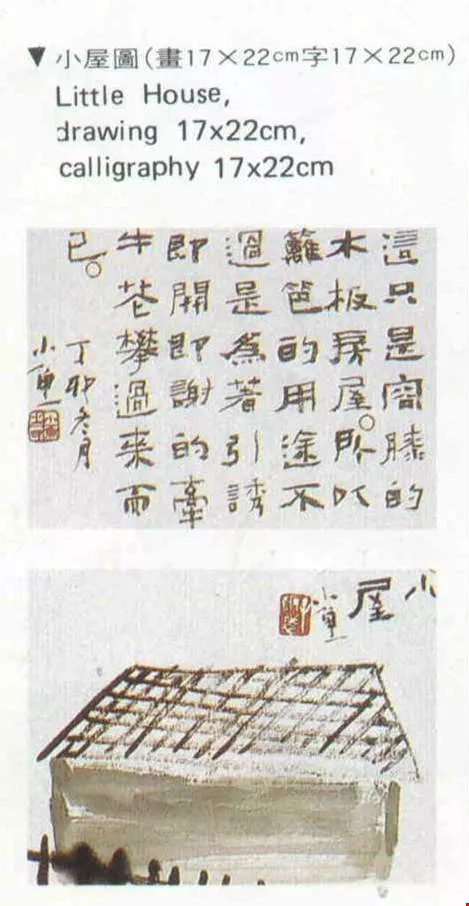 ▼小屋圖(畫17×22cm字17×22cm)
Little House,
drawing 17x22cm,
calligraphy 17x22cm
這只是容膝的
木板房屋。所以
籬笆的用途不
過是為著引誘
即開即謝的牽
牛花攀過来而
已。
丁卯冬月
小魚
小屋
小魚